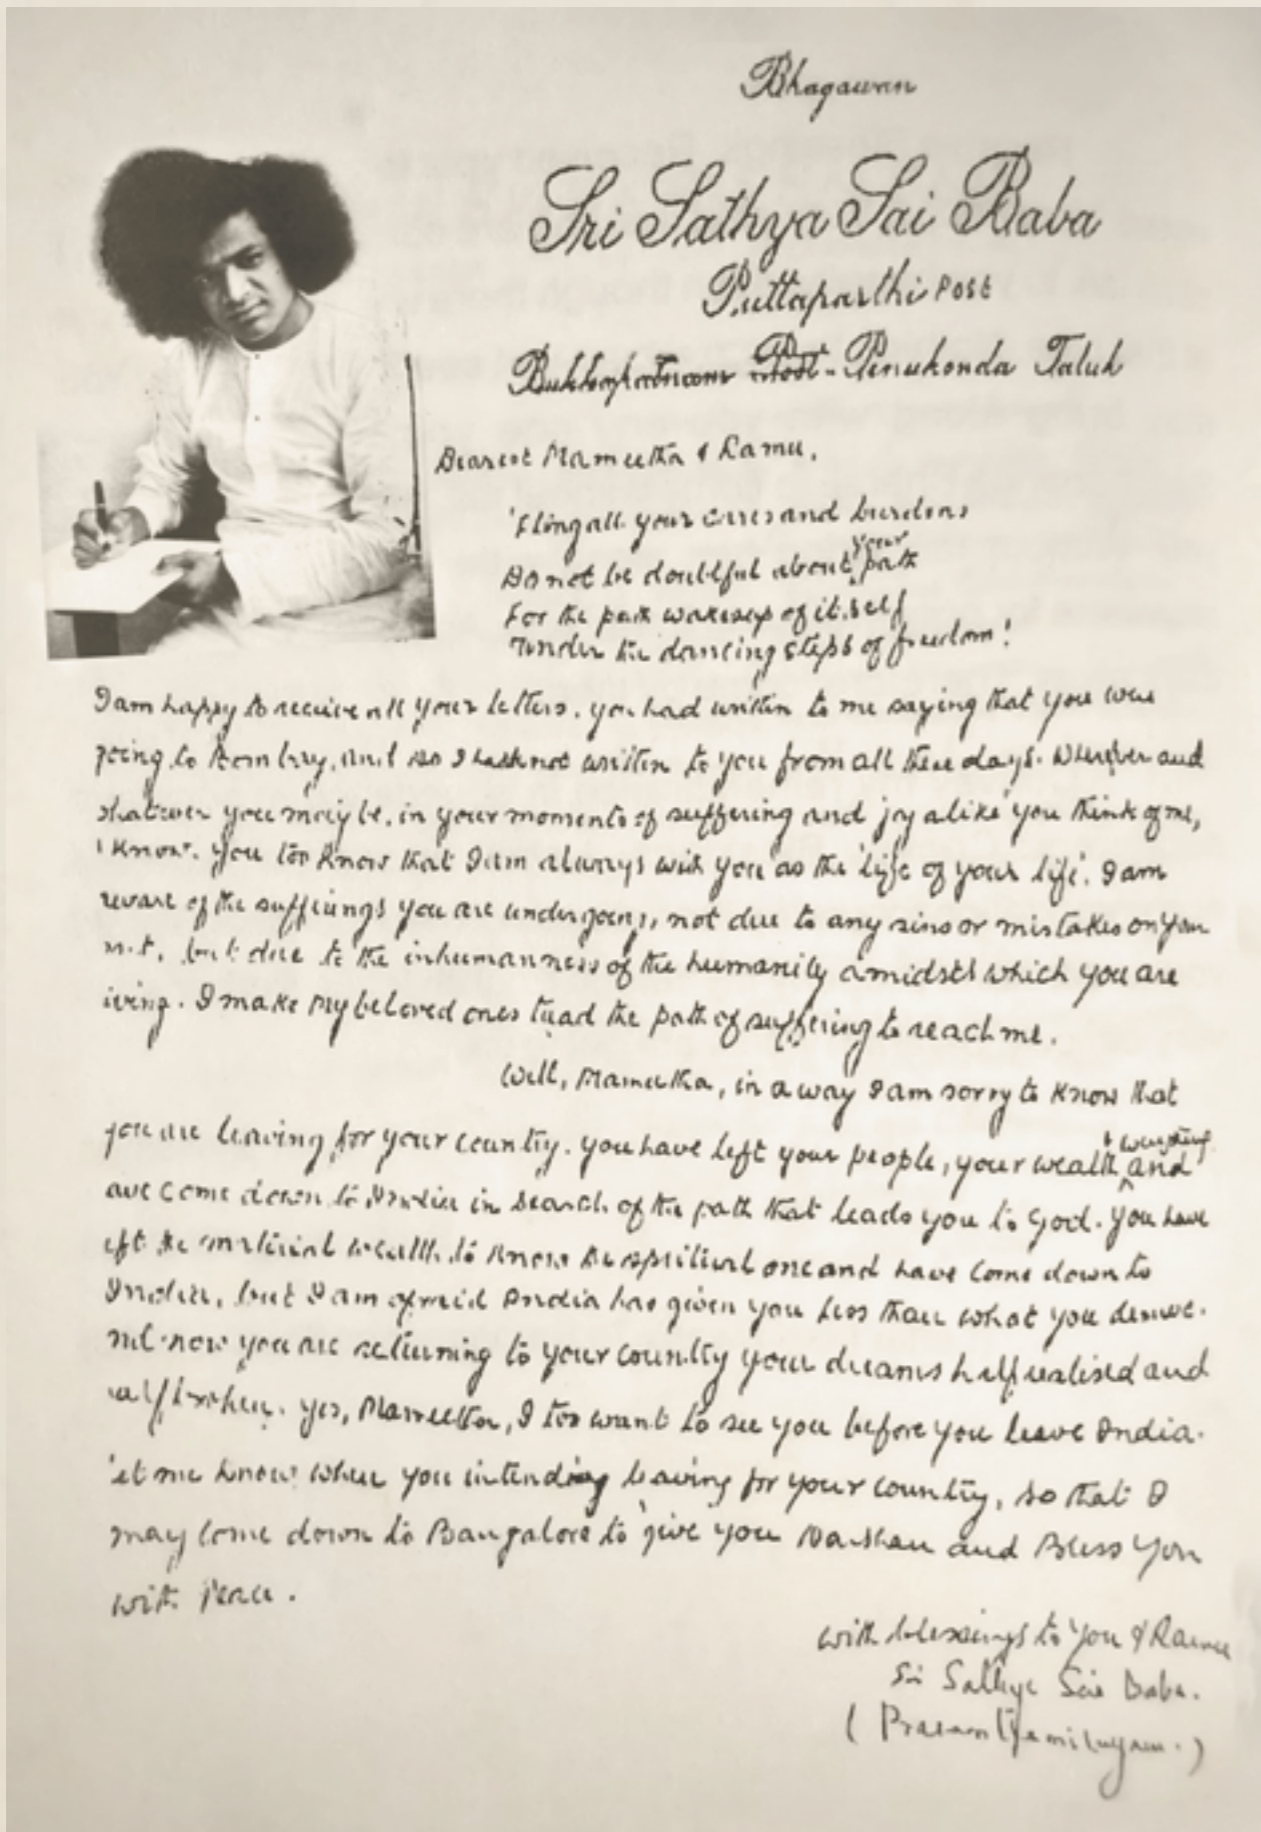 Bhagawan
Sri Sathya Sai Baba
Puttaparthi Post
Bukkapatnam Post - Penukonda Taluk
Dearest Mameetha & Ramu,
'Fling all your cares and burdens
Do not be doubtful about your path
For the path wakes up of it.self
Under the dancing steps of freedom!
I am happy to receive all your letters. you had written to me saying that you were
going to Bombay, and so I had not written to you from all these days. Wherever and
whatever you may be, in your moments of suffering and joy alike you think of me,
I know. You too know that I am always with you as the 'life of your life'. I am
aware of the sufferings you are undergoing, not due to any sins or mistakes on your
but due to the inhumanness of the humanity amidsts which you are
iving. I make my beloved ones tread the path of suffering to reach me.
Well, Mameetha, in a way I am sorry to know that
you are leaving for your country. you have left your people, your wealth & everything and
ave come down to India in search of the path that leads you to God. You have
eft the material wealth to know the spritiual one and have come down to
India, but I am afraid India has given you less than what you deserve.
now you are returning to your country your dreams half realised and
alf broken. yes, Mameetha, I too want to see you before you leave India.
et me know when you intending leaving for your country, so that I
may come down to Bangalore to give you Darshan and Bless You
with Peace.
with blessings to You & Ramu
Sri Sathya Sai Baba.
( Prasanthi nilayam. )